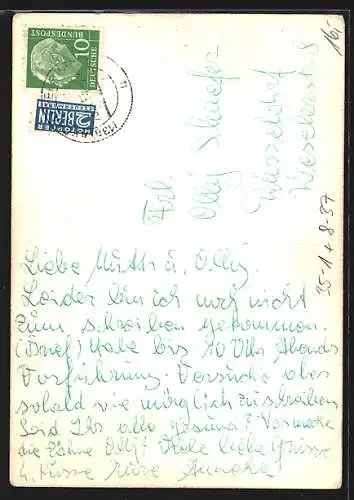 10
DEUTSCHE
BUNDESPOST
2 BERLIN
NOTOPFER
STEUERMARKE
16,-
Frl.
Olly Schaefer
Düsseldorf
35-1 + 8-57
Liebe Mutti u. Olly.
Leider bin ich noch nicht
zum schreiben gekommen.
(Brief) Habe bis 10 Uhr Abends
Vorführung. Versuche aber
sobald wie möglich zu schreiben
Seid Ihr alle gesund? Was machen
die Zähne Olly? Viele liebe Grüsse
u. Küsse Eure